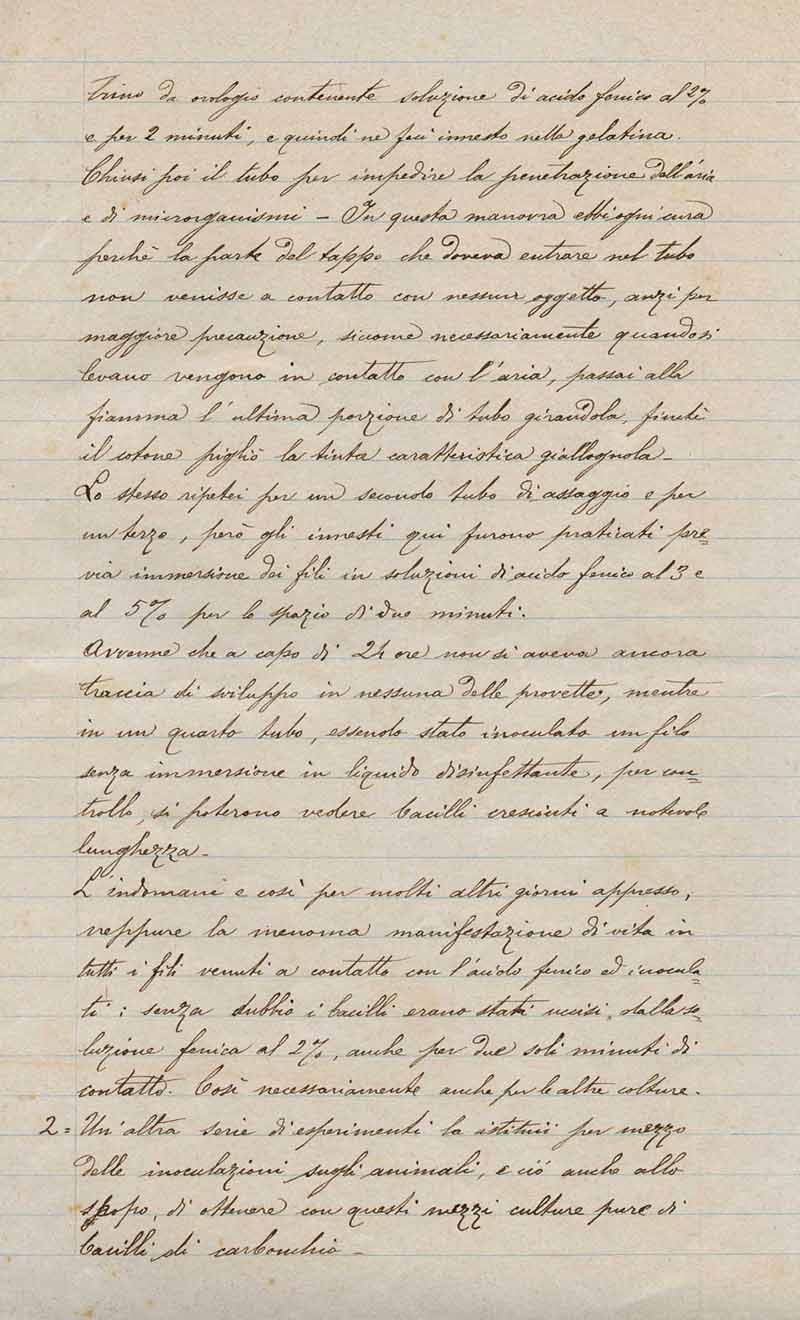 trino da orologio contenente soluzione di acido fenico al 2%
e per 2 minuti, e quindi ne feci innesto nella gelatina.
Chiusi poi il tubo per impedire la penetrazione dell'aria
e di microrganismi — In questa manovra ebbi ogni cura
perchè la parte del tappo che doveva entrare nel tubo
non venisse a contatto con nessun oggetto, anzi per
maggiore precauzione, siccome necessariamente quando si
levano vengono in contatto con l'aria, passai alla
fiamma l'ultima porzione di tubo girandola, finchè
il cotone pigliò la tinta caratteristica giallognola —
Lo stesso ripetei per un secondo tubo di assaggio e per
un terzo, però gli innesti qui furono praticati pre=
via immersione dei fili in soluzioni di acido fenico al 3 e
al 5% per lo spazio di due minuti.
Avvenne che a capo di 24 ore non si aveva ancora
traccia di sviluppo in nessuna delle provette, mentre
in un quarto tubo, essendo stato inoculato un filo
senza immersione in liquido disinfettante, per con=
trollo, si poterono vedere bacilli cresciuti a notevole
lunghezza —
L'indomani e così per molti altri giorni appresso,
neppure la menoma manifestazione di vita in
tutti i fili venuti a contatto con l'acido fenico ed inocula=
ti; senza dubbio i bacilli erano stati uccisi, dalla so=
luzione fenica al 2%, anche per due soli minuti di
contatto. Così necessariamente anche per le altre colture.
2 = Un'altra serie di esperimenti la istituii per mezzo
delle inoculazioni sugli animali, e ciò anche allo
scopo, di ottenere con questi mezzi culture pure di
bacilli di carbonchio —